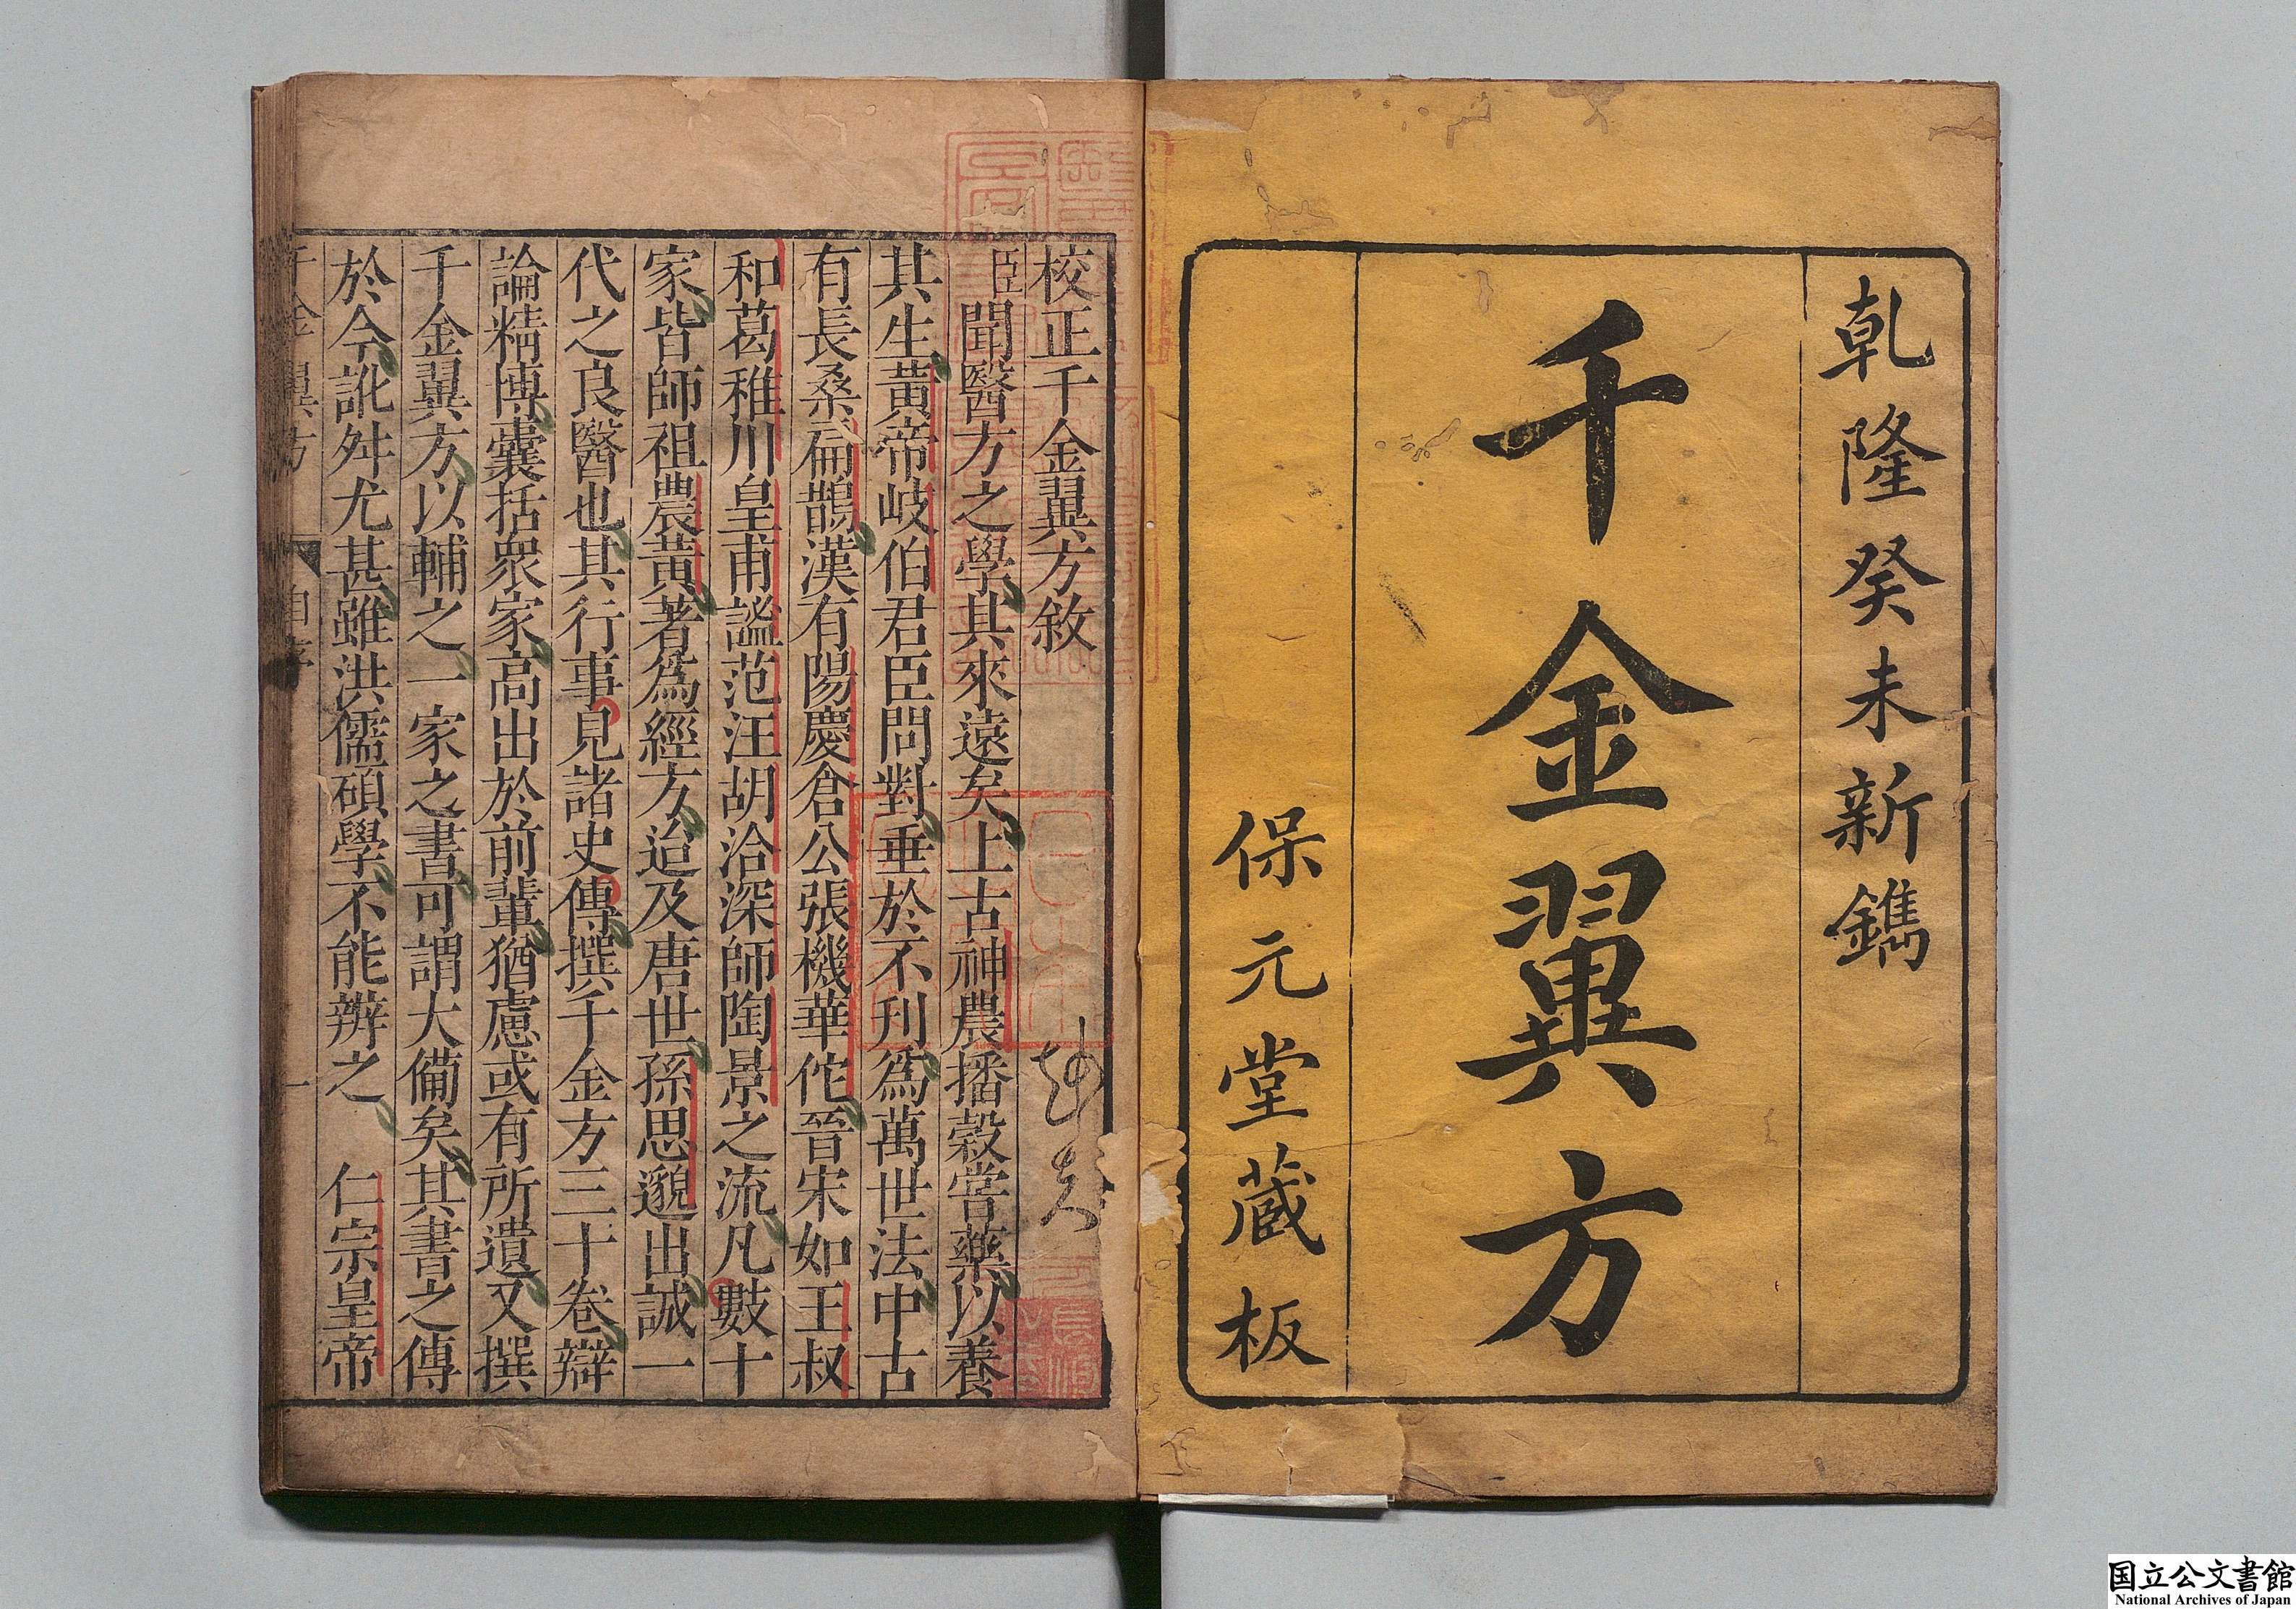 乾隆癸未新鐫
千金翼方
保元堂蔵板
校正千金翼方敘
臣聞醫方之學其來遠矣上古神農播穀嘗藥以養
其生黃帝岐伯君臣問對垂於不刊為萬世法中古
有長桑扁鵲漢有陽慶倉公張機華佗晉宋如王叔
和葛稚川皇甫謐范汪胡洽深師陶景之流凡數十
家皆師祖農黃著為經方迨及唐世孫思邈出誠一
代之良醫也其行事見諸史傳撰千金方三十卷辯
論精博囊括眾家高出於前輩猶慮或有所遺又撰
千金翼方以輔之一家之書可謂大備矣其書之傳
於今訛舛尤甚雖洪儒碩學不能辨之 仁宗皇帝
千金翼方 一
国立公文書館
National Archives of Japan